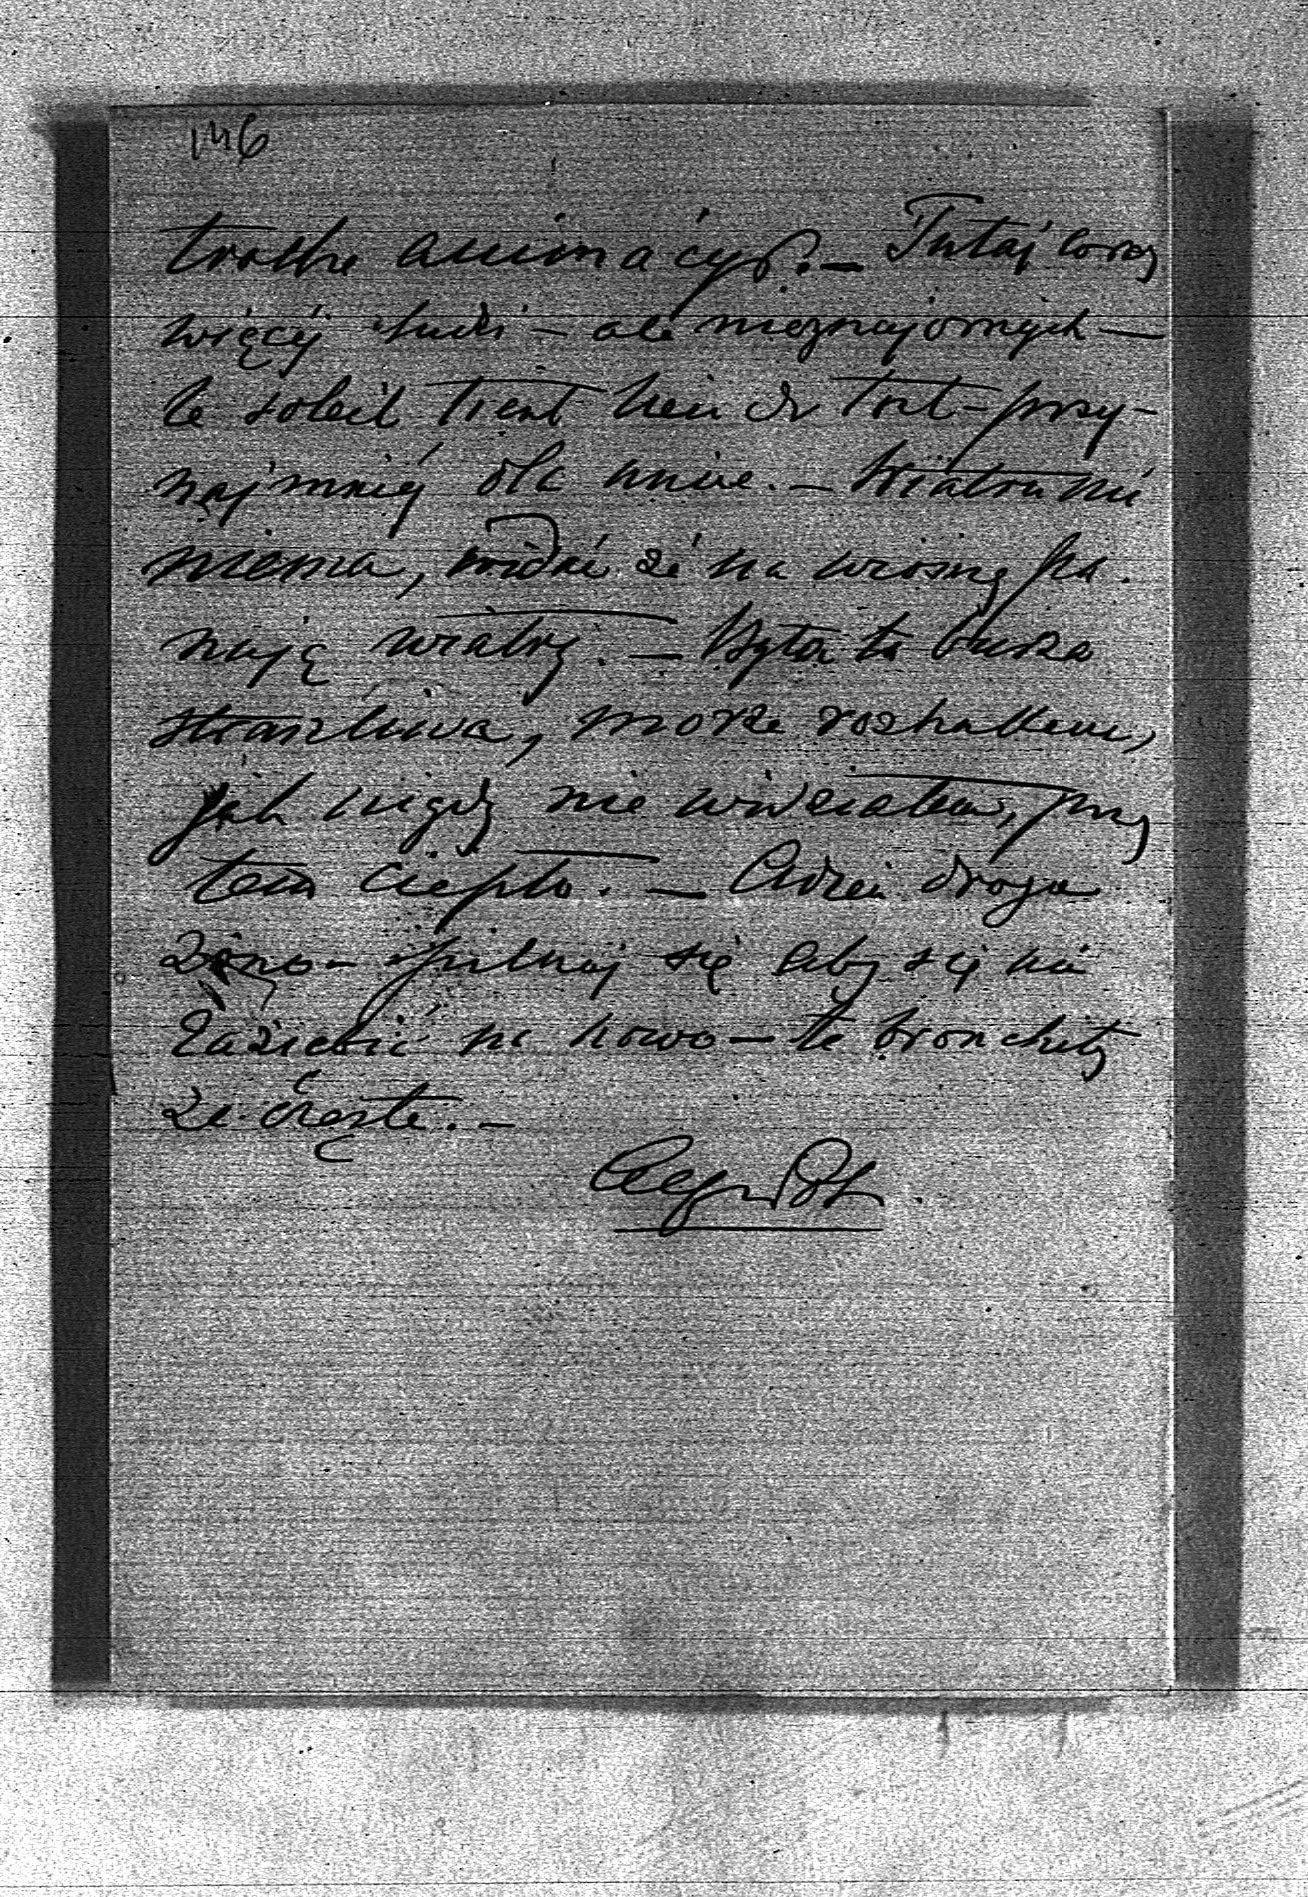 146
trochę animacyi. — Tutaj coraz
więcéj ludzi — ale nieznajomych —
le soleil tient lieu de tout — przy-
najmniéj dla mnie. — Wiatru nie
niema, widać że na wiosnę pa-
nują wiatry. — Była tu burza
straszliwa, morze rozhukane,
jak nigdy nie widziałam, przy
tem ciepło. — Adzieu droga
żono — pilnuj się aby się nie
zaziębić na nowo — te bronchity
za częste. —